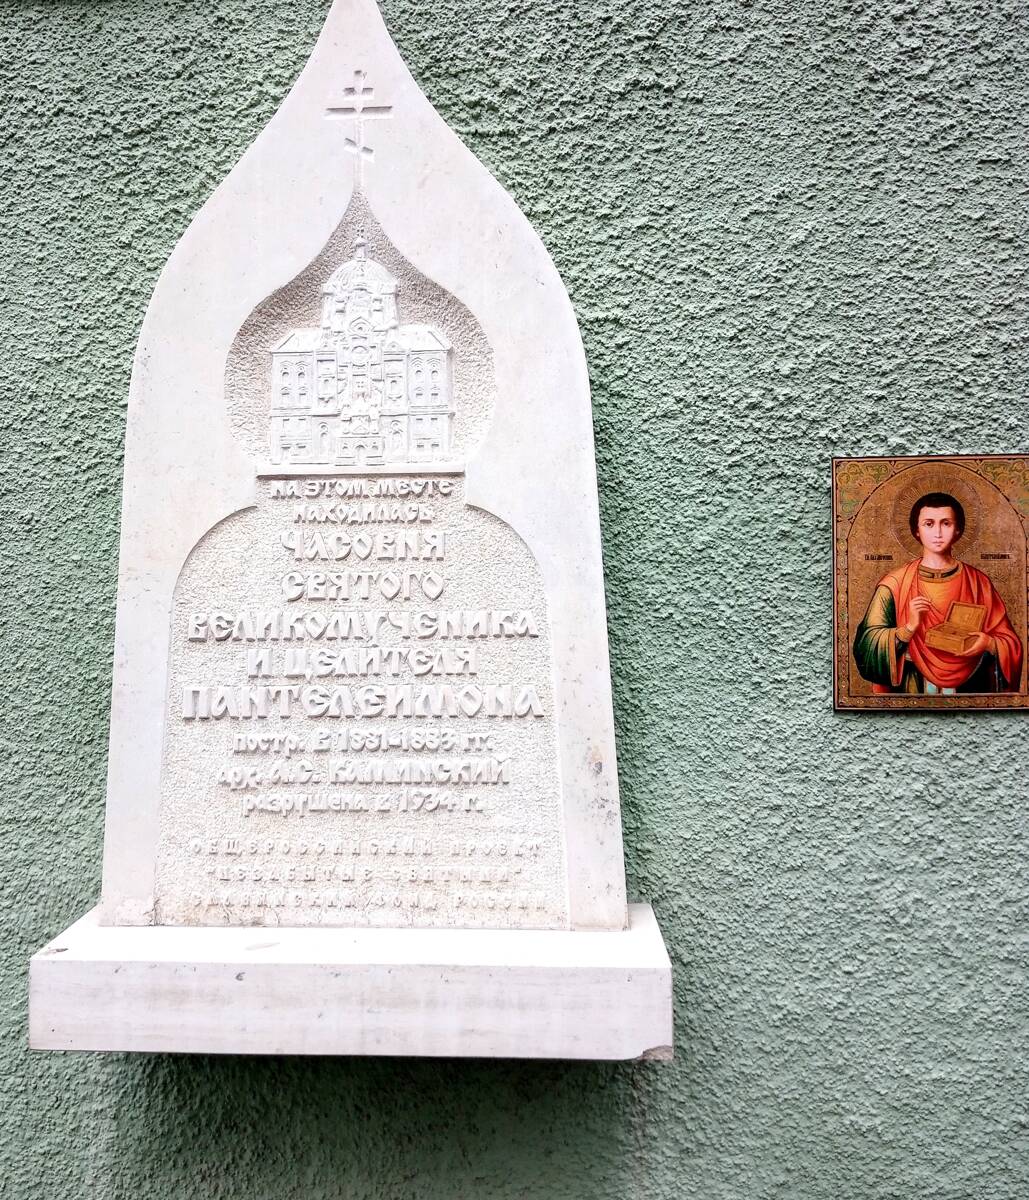 на этом месте
находилась
ЧАСОВНЯ
СВЯТОГО
ВЕЛИКОМУЧЕНИКА
И ЦЕЛИТЕЛЯ
ПАНТЕЛЕИМОНА
постр. в 1881-1883 гг.
арх. А.С. Каминский
разрушена в 1934 г.
ОБЩЕРОССИЙСКИЙ ПРОЕКТ
"НЕЗАБЫТЫЕ СВЯТЫНИ"
СЛАВЯНСКИЙ ФОНД РОССИИ